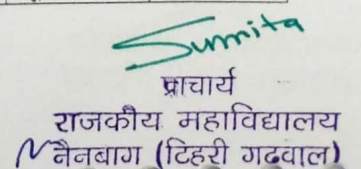 Sumita
प्राचार्य
राजकीय महाविद्यालय
नैनबाग (टिहरी गढवाल)